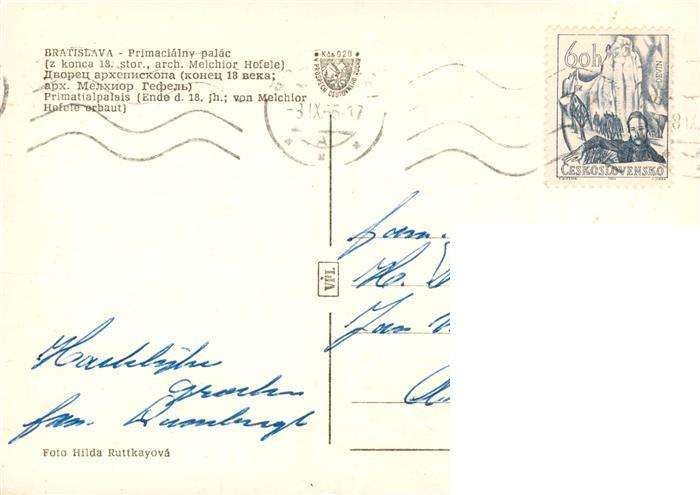 BRATISLAVA - Primaciálny palác
(z konca 18. stor., arch. Melchior Hefele)
Дворец архепископа (конец 18 века;
арх. Мелхиор Гефель)
Primatialpalais (Ende d. 18. Jh.; von Melchior
Hefele erbaut)
Kčs 0,20
-3.IX.66-17
60h
DEVÍN
ČESKOSLOVENSKO
fam.
H.
Jan
Hartelijke
groeten
fam.
Foto Hilda Ruttkayová